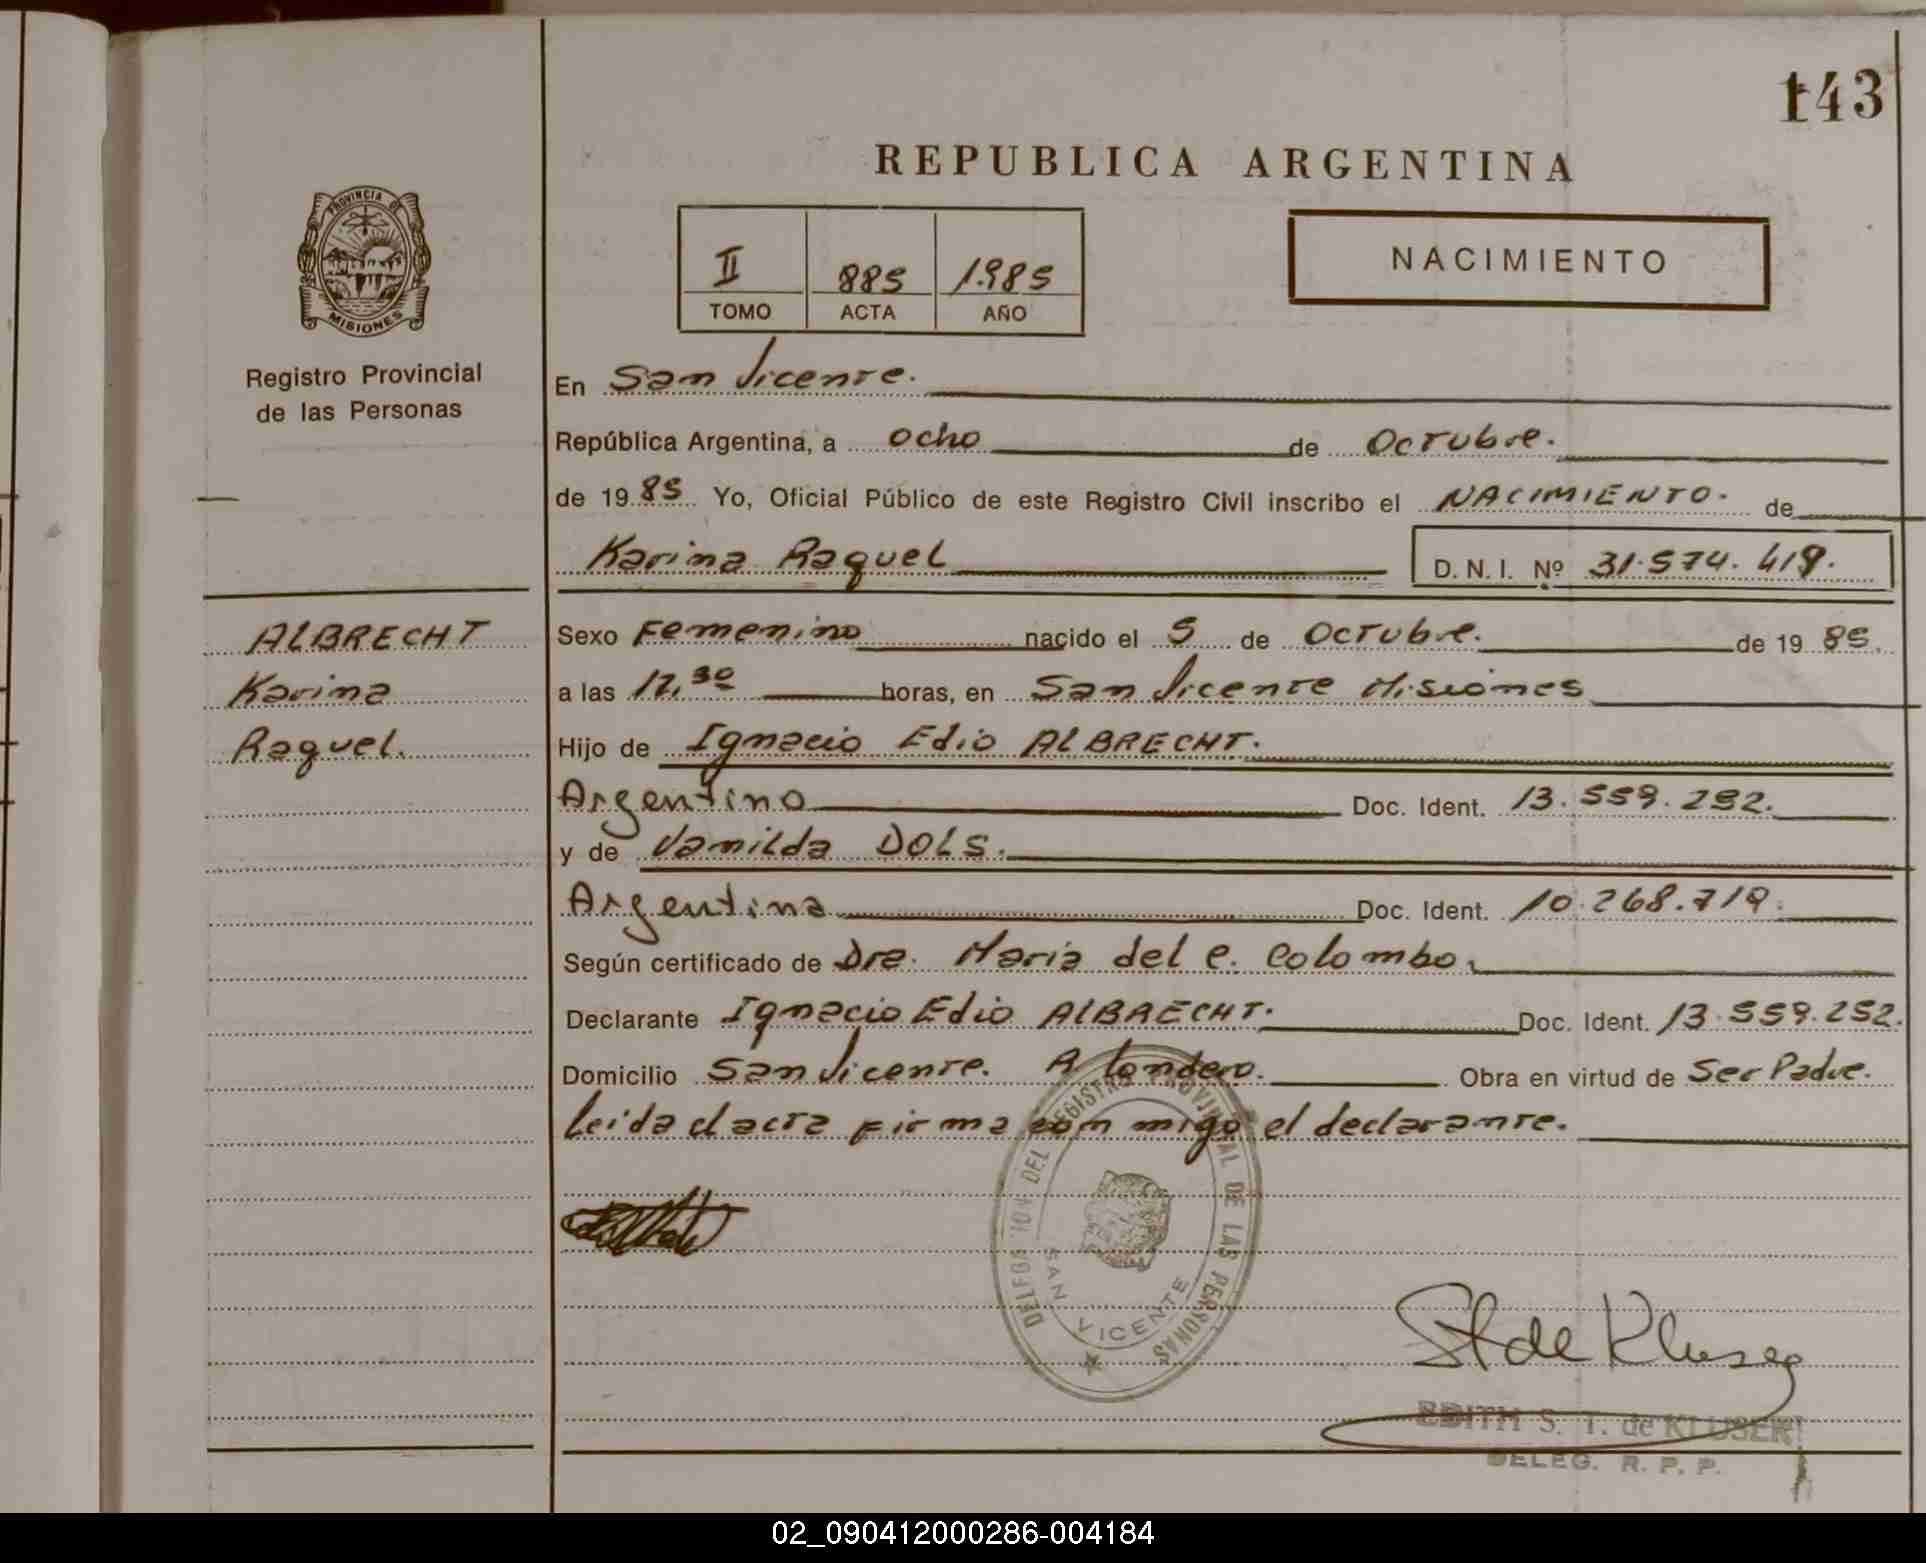 143
REPUBLICA ARGENTINA
PROVINCIA DE
MISIONES
Registro Provincial
de las Personas
II 885 1.985
TOMO ACTA AÑO
NACIMIENTO
En San Vicente.
República Argentina, a ocho de Octubre.
de 1985 Yo, Oficial Público de este Registro Civil inscribo el NACIMIENTO. de
Karina Raquel D.N.I. Nº 31.574.419.
ALBRECHT
Karina
Raquel.
Sexo Femenino nacido el 5 de Octubre. de 1985.
a las 12,30 horas, en San Vicente Misiones
Hijo de Ignacio Edio ALBRECHT.
Argentino Doc. Ident. 13.559.252.
y de Vanilda DOLS.
Argentina Doc. Ident. 10.268.719.
Según certificado de Dra. Maria del C. Colombo.
Declarante Ignacio Edio ALBRECHT. Doc. Ident. 13.559.252.
Domicilio San Vicente. A Londero. Obra en virtud de Ser Padre.
Leida el acta firma conmigo el declarante.
DELEGACION DEL REGISTRO PROVINCIAL DE LAS PERSONAS
SAN VICENTE
St de Kluser
EDITH S. T. de KLUSER
DELEG. R. P. P.
02_090412000286-004184